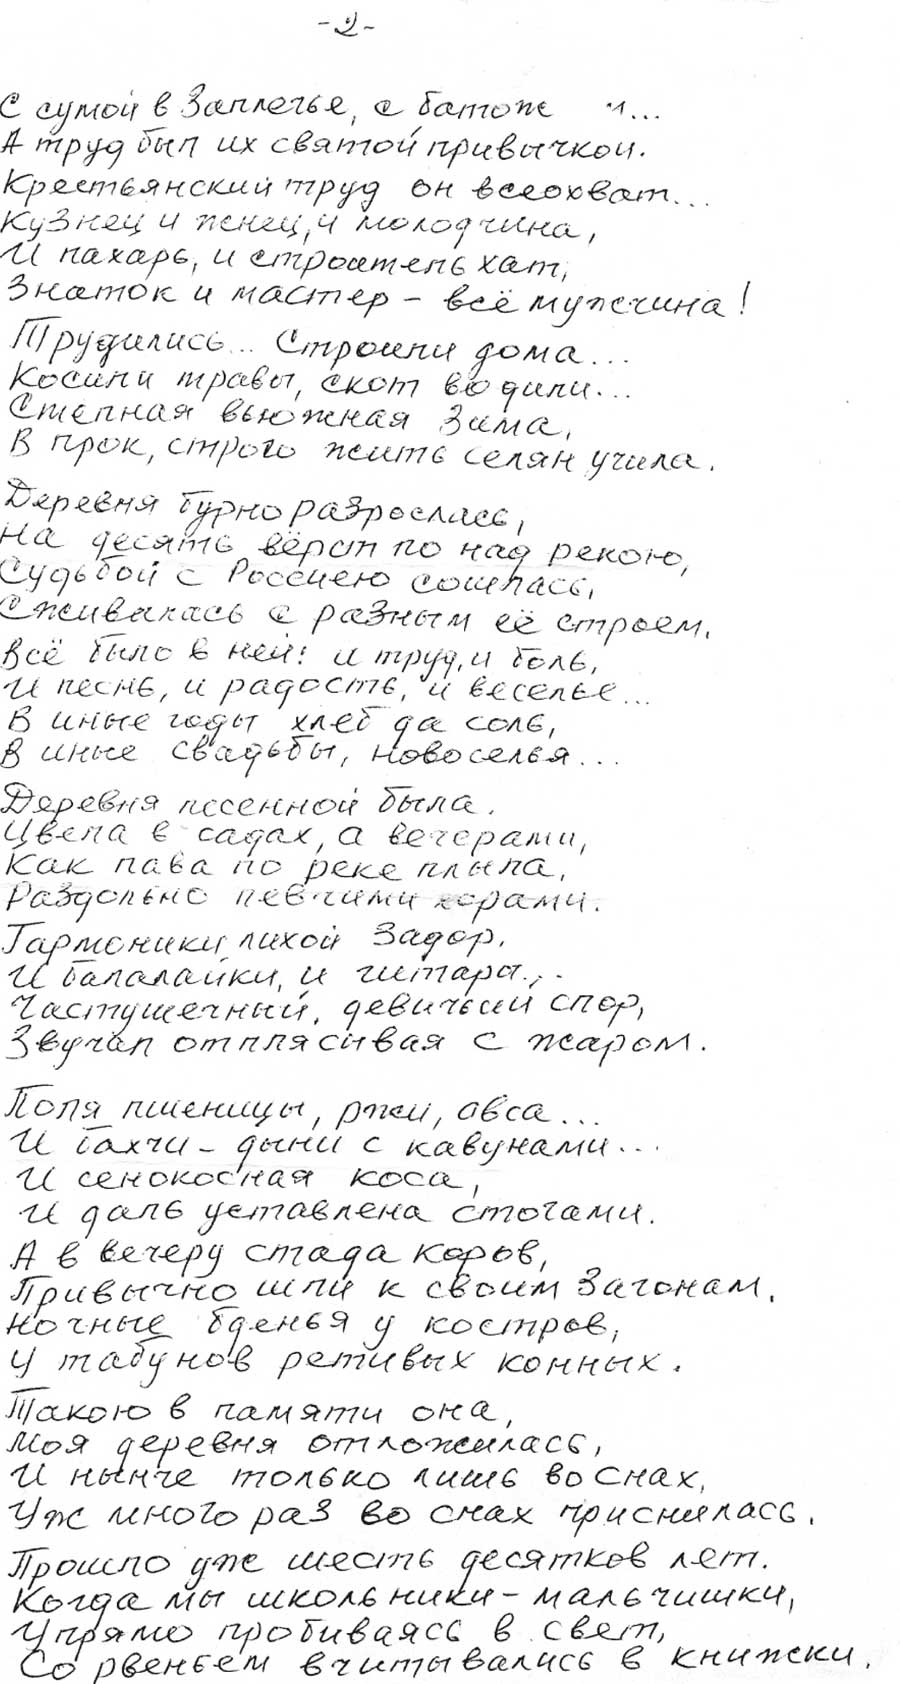 -2-
С сумой в Заплечье, с батож
А труд был их святой привычкой.
Крестьянский труд он всеохват...
Кузнец и жнец, и молодчина,
И пахарь, и строитель хат,
Знаток и мастер - всё мужчина!
Трудились... Строили дома...
Косили травы, скот водили...
Степная вьюжная Зима,
В прок, строго жить селян учила.
Деревня бурно разрослась,
На десять вёрст по над рекою,
Судьбой с Россиею сошлась,
Сживалась с разным её строем.
Всё было в ней: и труд, и боль,
И песнь, и радость, и веселье...
В иные годы хлеб да соль,
В иные свадьбы, новоселья...
Деревня песенной была.
Цвела в садах, а вечерами,
Как пава по реке плыла,
Раздольно певчими хорами.
Гармоники лихой Задор,
И балалайки, и гитара...
Частушечный, девичьий спор,
Звучал отплясивая с жаром.
Поля пшеницы, ржи, овса...
И бахчи - дыни с кавунами...
И сенокосная коса,
И даль уставлена стогами.
А в вечеру стада коров,
Привычно шли к своим Загонам,
Ночные бденья у костров,
У табунов ретивых конных.
Такою в памяти она,
Моя деревня отложилась,
И нынче только лишь во снах,
Уж много раз во снах приснилась.
Прошло уже шесть десятков лет.
Когда мы школьники - мальчишки,
Упрямо пробиваясь в свет,
Со рвеньем вчитывались в книжки.